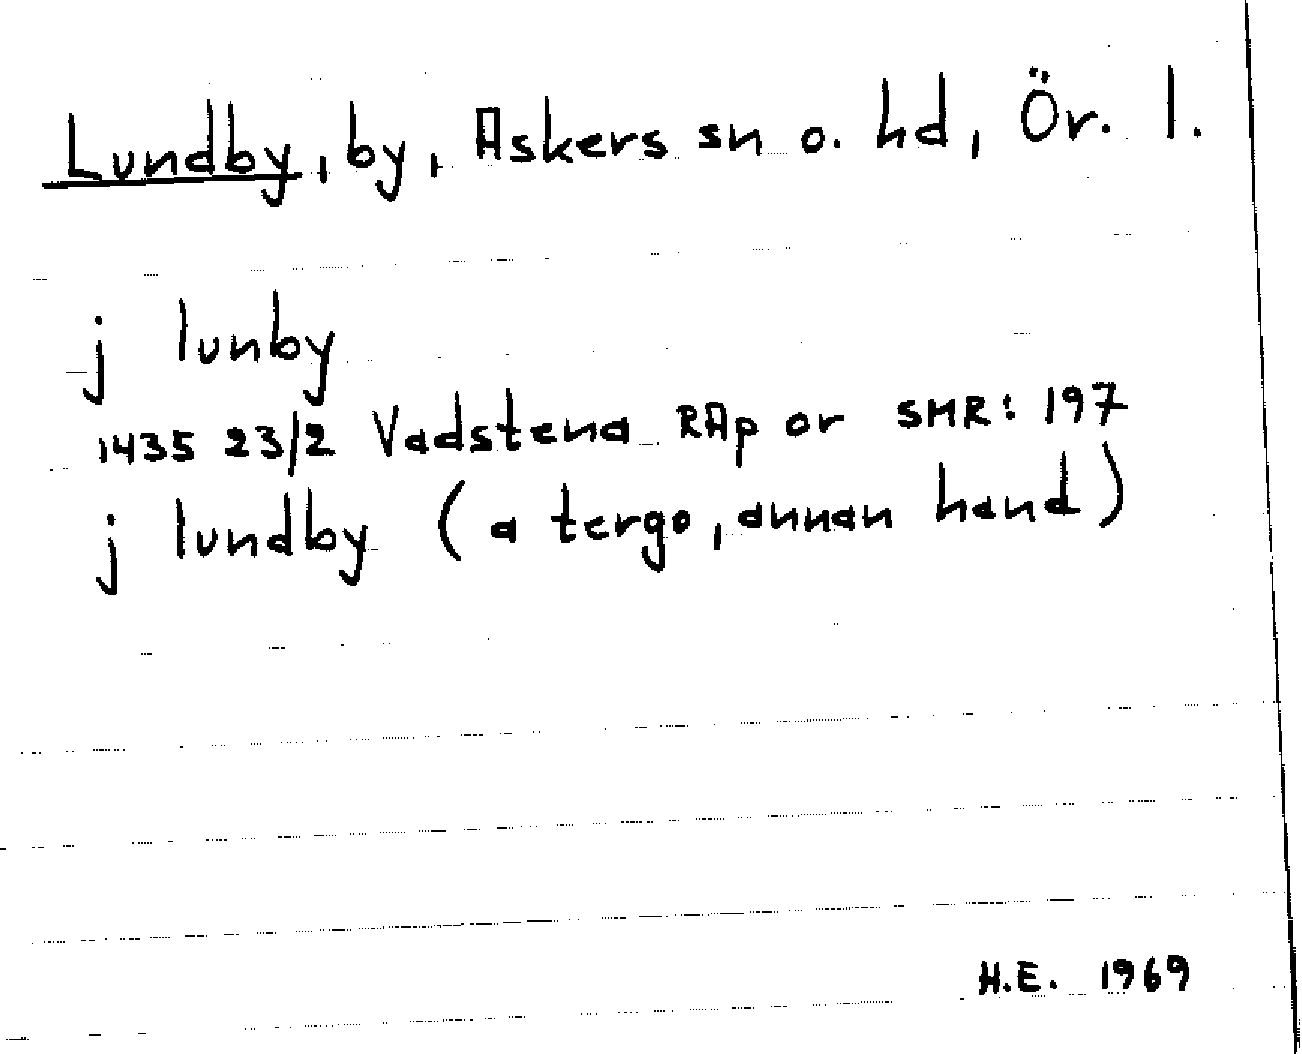 Lundby, by, Askers sn o. hd, Ör. l.
j lunby
1435 23/2 Vadstena RAp or SMR: 197
j lundby (a tergo, annan hand)
H.E. 1969